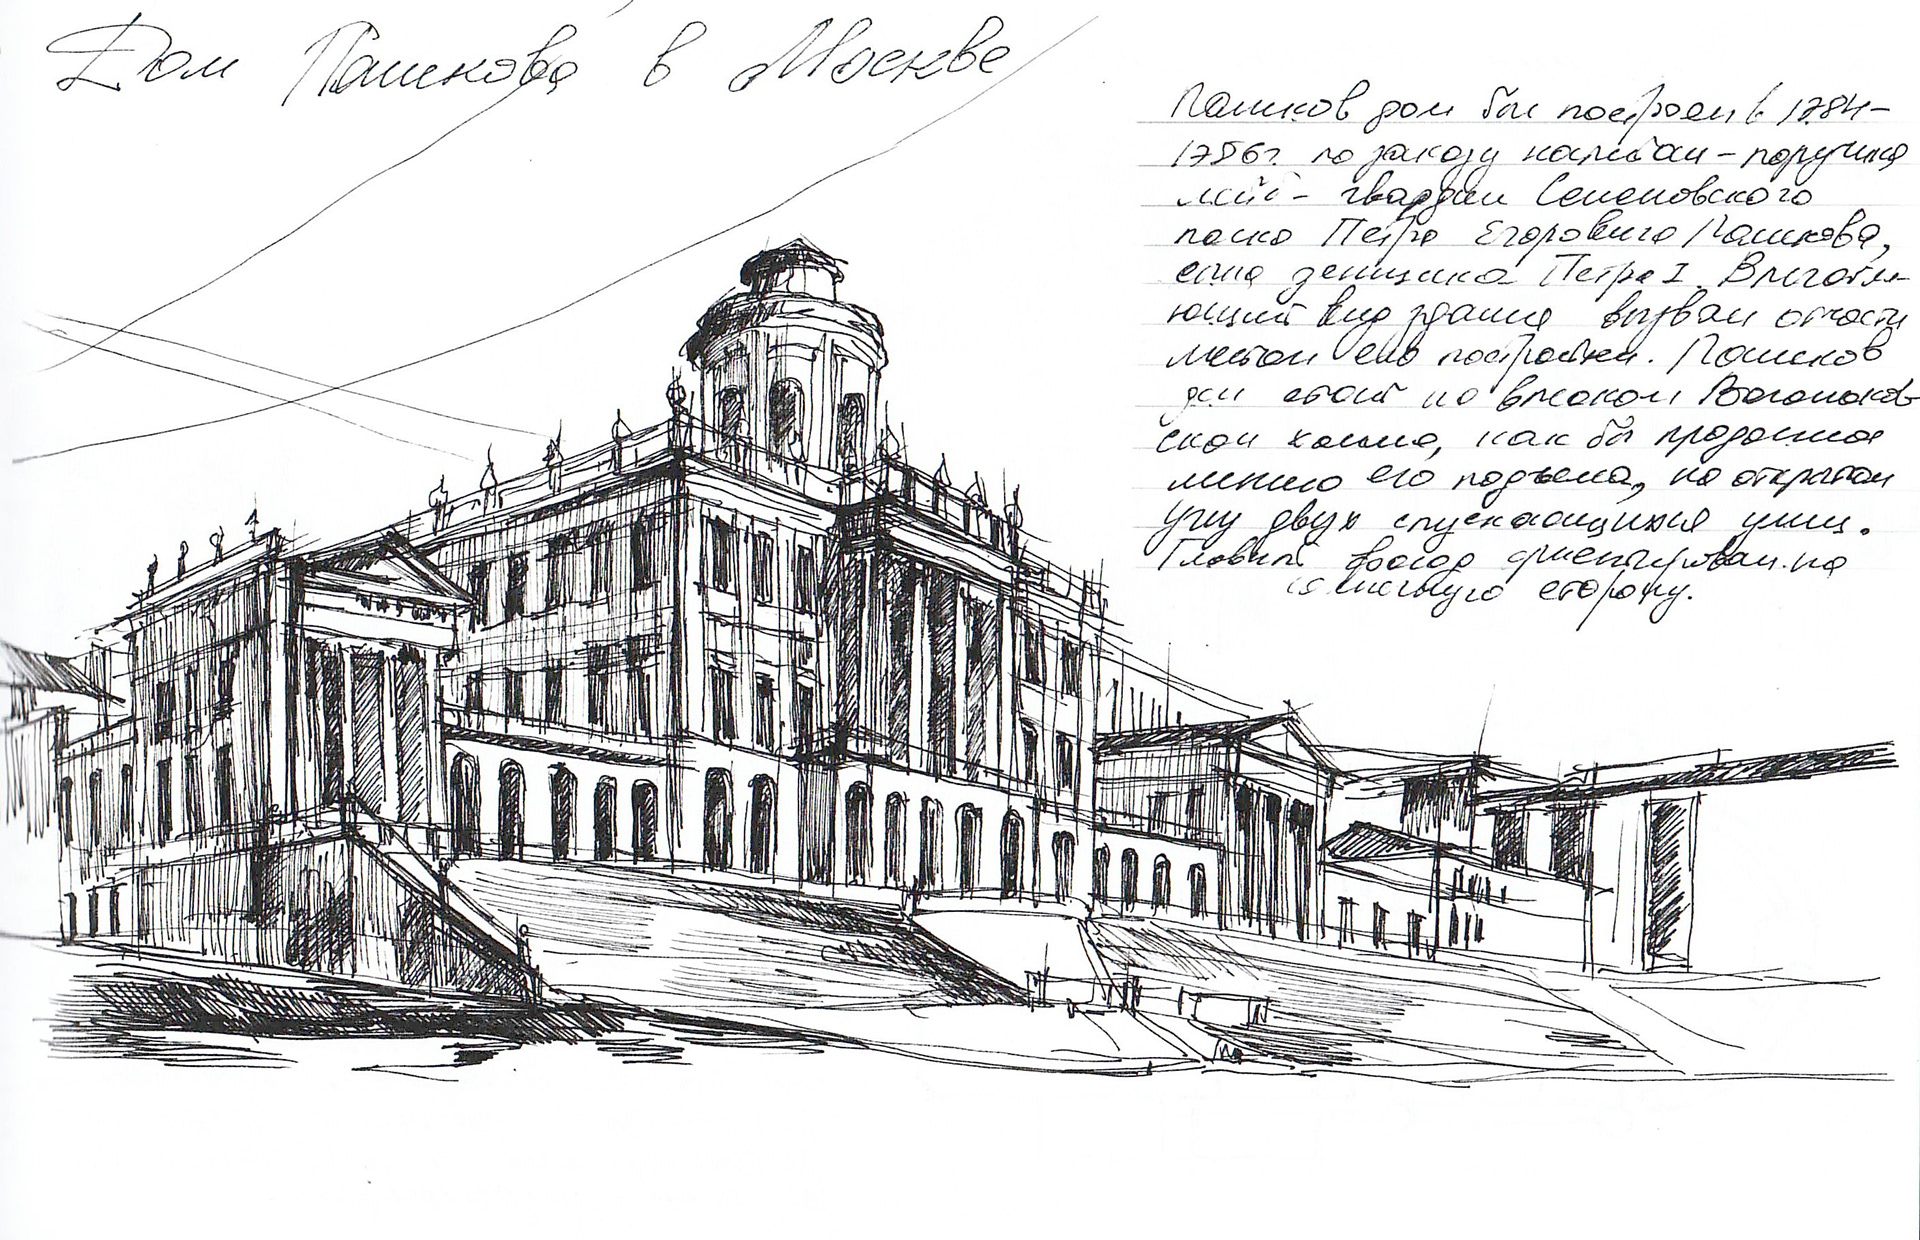 Дом Пашкова в Москве
Пашков дом был построен в 1784-
1786г. по заказу капитан-поручика
лейб-гвардии Семеновского
полка Петра Егоровича Пашкова,
сына денщика Петра I. Впечатля-
ющий вид здания вызван отчасти
местом его постройки. Пашков
дом стоит на высоком Ваганьков-
ском холме, как бы продолжая
линию его подъема, на открытом
углу двух спускающихся улиц.
Главный фасад ориентирован на
солнечную сторону.